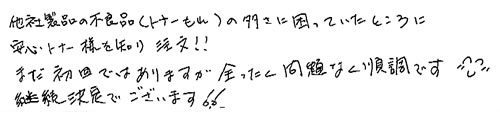 他社製品の不良品(トナーもれ)の多さに困っていたところに
安心トナー様を知り注文!!
まだ初回ではありますが全ったく問題なく順調です
継続決定でございます